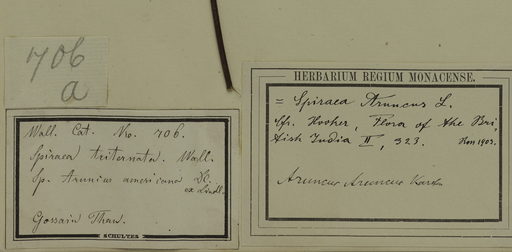 706
a
Wall. Cat. No. 706.
Spiraea triternata. Wall.
Sp. Aruncus americana Dl.
ex Lindl.
Gossain Than.
SCHULTES
HERBARIUM REGIUM MONACENSE.
= Spiraea Aruncus L.
Cfr. Hooker, Flora of the Bri,
tish India II, 323.
1903.
Aruncus Aruncus Karst.